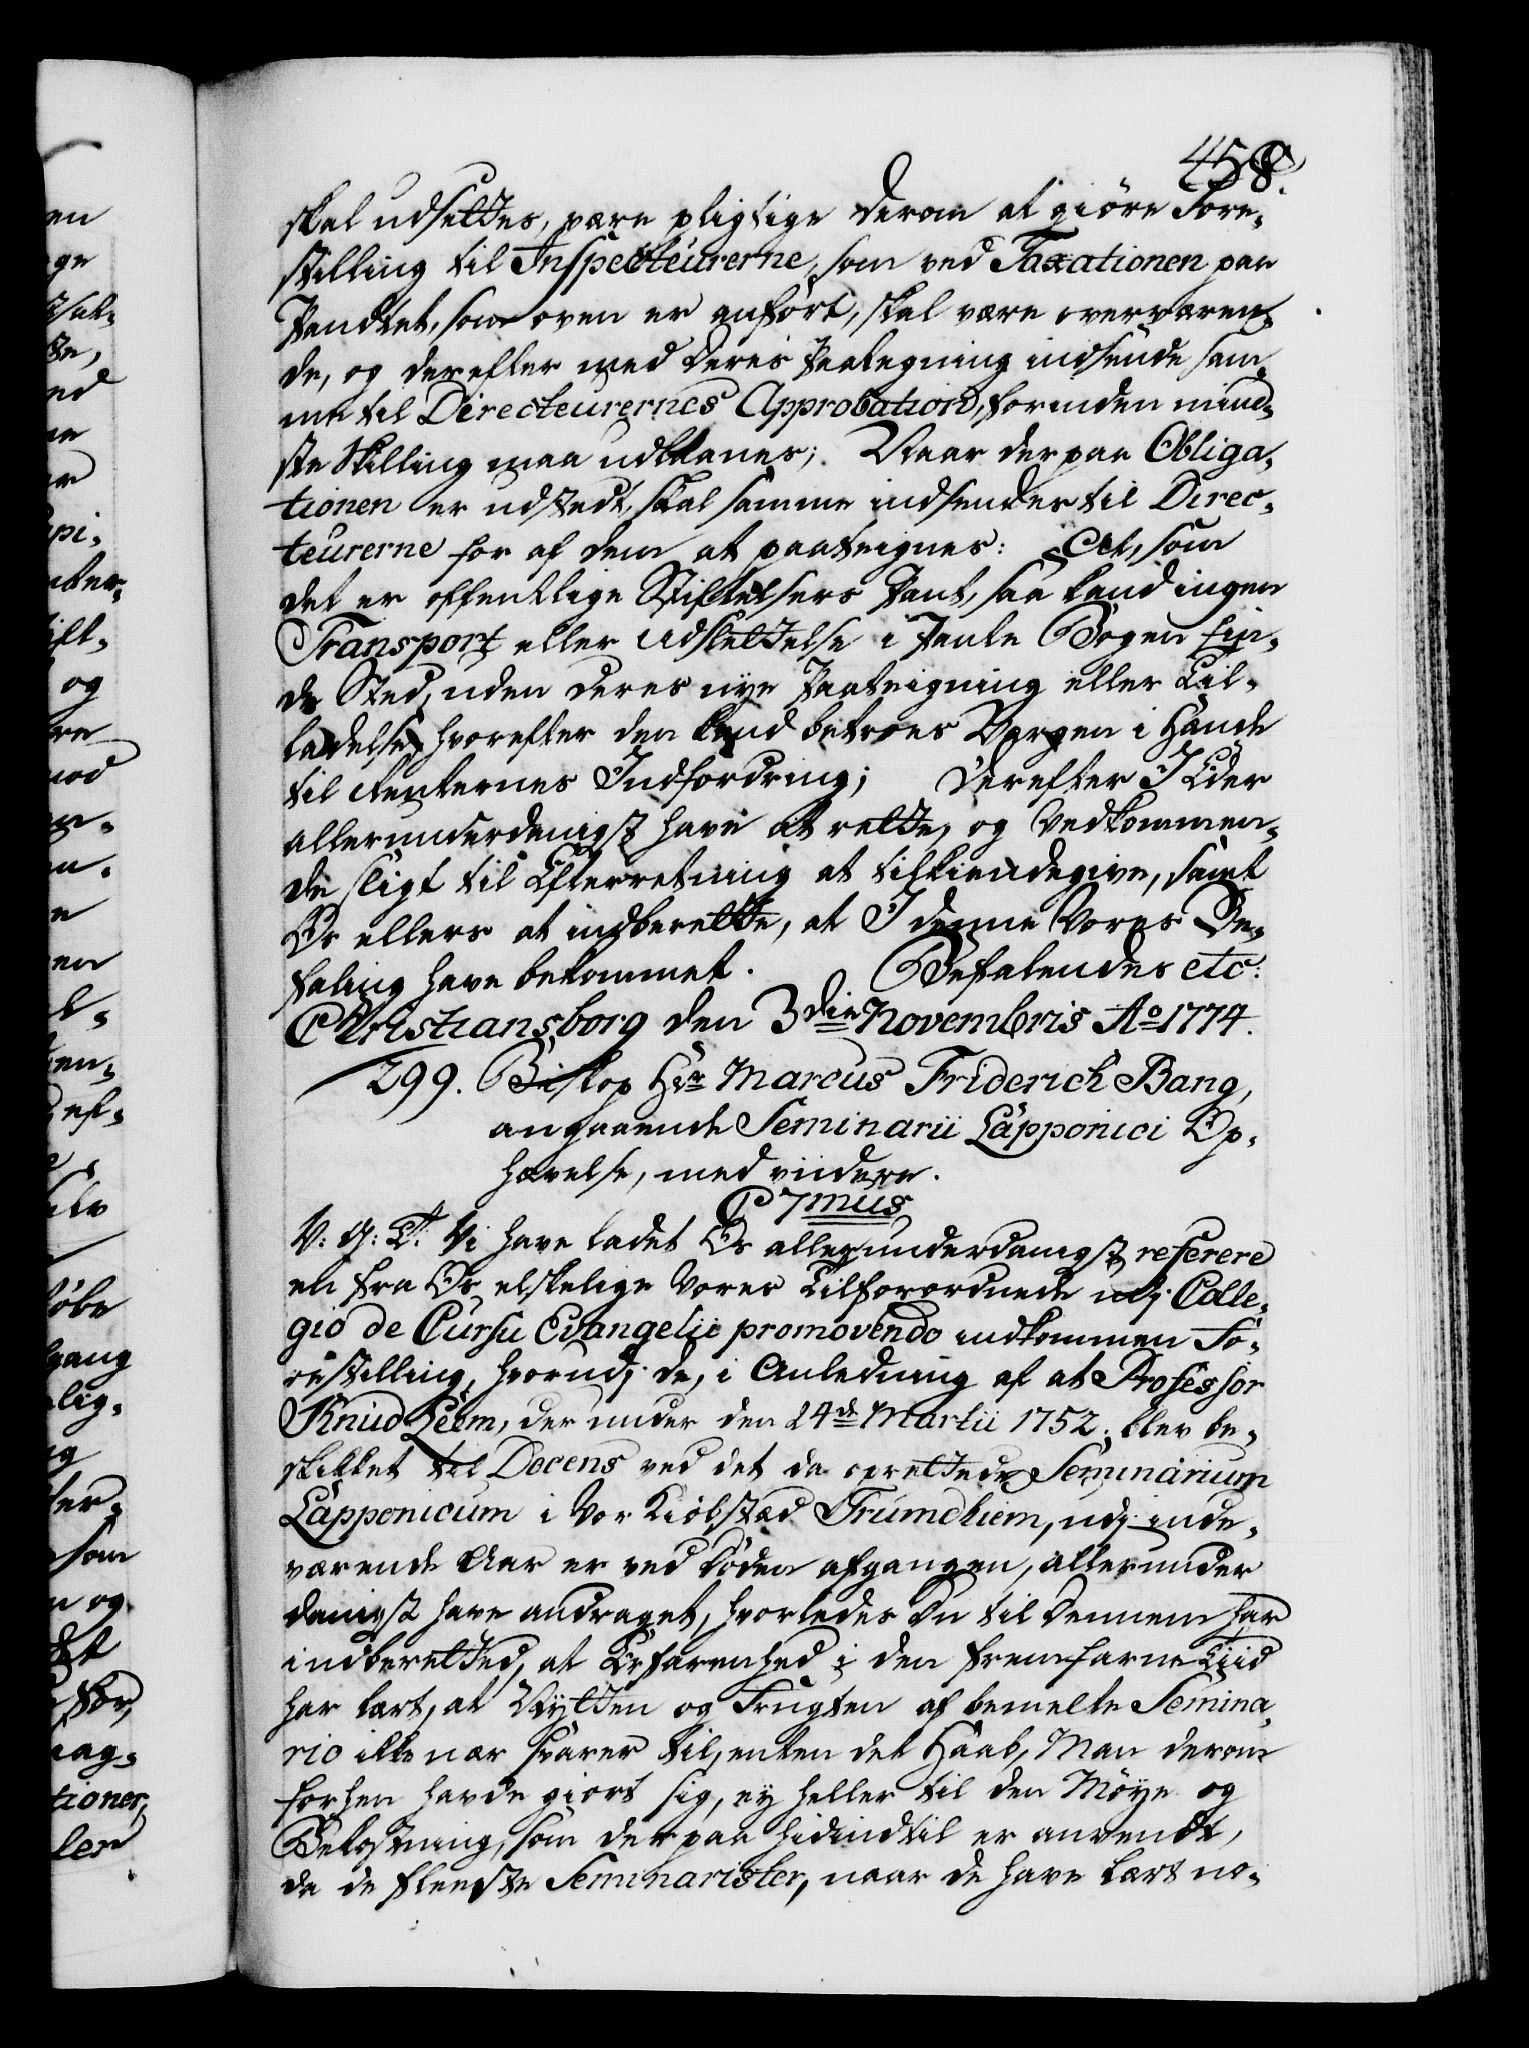 458.
skal udsettes, være pligtige derom at giöre Fore-
stilling til Inspecteurerne, som ved Taxationen paa
Pandtet, som oven er anfört, skal være overværen-
de, og derefter med deres Paategning indsende sam-
me til Directeurernes Approbation, forinden mind-
ste Skilling maa udlaanes; Naar derpaa Obliga-
tionen er udstedt, skal samme indsendes til Direc-
teurerne for af dem at paateignes: At, som
det er offentlige Stiftelsers Pant, saa kand ingen
Transport eller Udslettelse i Pante Bogen fin-
de Sted, uden deres nye Paateigning eller Til-
ladelse, hvorefter den kand betroes Vergen i Hænde
til Renternes Indfordring; Derefter I Eder
allerunderdanigst have at rette, og Vedkommen-
de sligt til Efterretning at tilkiendegive, samt
Os ellers at indberette, at I denne Vores Be-
faling have bekommet. Befalendes etc:
Christiansborg den 3die Novembris Ao 1774.
299. Biskop Hr Marcus Friderich Bang,
angaaende Seminarii Lapponici Op-
hævelse, med videre.
C 7mus
V: G: T: Vi have ladet Os allerunderdanigst referere
en fra Os elskelige Vores Tilforordnede udj Colle-
gio de Cursu Evangelii promovendo indkommen Fo-
restilling, hvorudj de, i Anledning af at Professor
Knud Leem, der under den 24de Martii 1752. blev be-
skikket til Docens ved det da oprettede Seminarium
Lapponicum i Vor Kiöbstæd Trundhiem, udj inde-
værende Aar er ved Döden afgangen, allerunder
danigst have andraget, hvorledes Du til dennem har
indberetted, at Erfarenhed i den fremfarne Tiid
har lært, at Nytten og Frugten af bemelte Semina-
rio ikke nær svarer til, enten det Haab, Man derom
forhen havde giort sig, ey heller til den Möye og
Bekostning, som derpaa hidindtil er anvendt,
da de fleeste Seminarister, naar de have lært no-